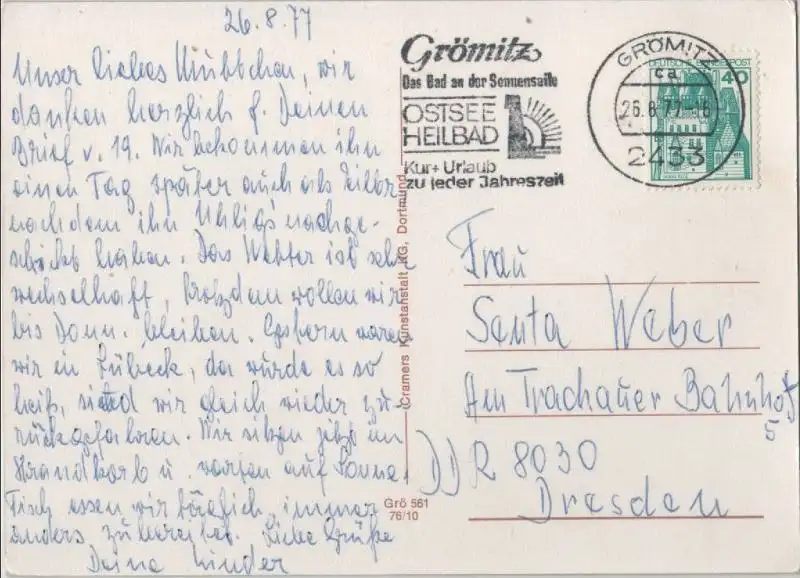 26.8.77
Unser liebes Muttchen, wir
danken herzlich f. Deinen
Brief v. 19. Wir bekommen ihn
einen Tag später auch als
nachdem ihn Uhligs nachge-
schickt haben. Das Wetter ist sehr
wechselhaft, trotzdem wollen wir
bis Donn. bleiben. Gestern waren
wir in Lübeck, da wurde es so
heiß, sind wir gleich wieder zu-
rückgefahren. Wir sitzen jetzt im
Strandkorb u. warten auf Sonne.
Fisch essen wir täglich, immer
anders zubereitet. Liebe Grüße
Deine Kinder
Grömitz
Das Bad an der Sonnenseite
OSTSEE
HEILBAD
Kur + Urlaub
zu jeder Jahreszeit
GRÖMITZ
ca
26.8.77-16
2433
DEUTSCHE BUNDESPOST
40
Cramers Kunstanstalt KG, Dortmund
Frau
Senta Weber
Am Trachauer Bahnhof
5
DDR 8030
Dresden
Grö 561
76/10